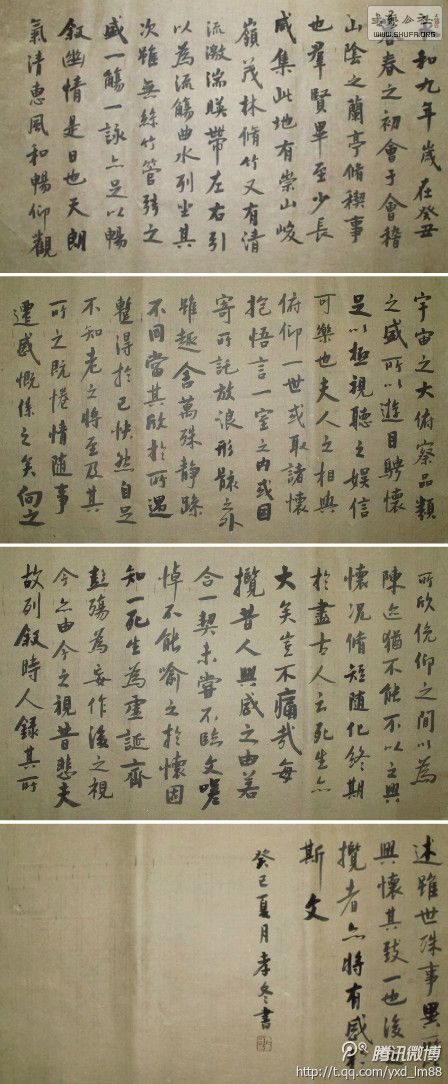 WWW.SHUFA.ORG
和九年歲在癸丑
春之初會于會稽
山陰之蘭亭脩稧事
也羣賢畢至少長
咸集此地有崇山峻
嶺茂林脩竹又有清
流激湍暎帶左右引
以為流觴曲水列坐其
次雖無絲竹管弦之
盛一觴一詠亦足以暢
敘幽情是日也天朗
氣清惠風和暢仰觀
宇宙之大俯察品類
之盛所以遊目騁懷
足以極視聽之娛信
可樂也夫人之相與
俯仰一世或取諸懷
抱悟言一室之內或因
寄所託放浪形骸之外
雖趣舍萬殊靜躁
不同當其欣於所遇
蹔得於己怏然自足
不知老之將至及其
所之既惓情隨事
遷感慨係之矣向之
所欣俛仰之間以為
陳迹猶不能不以之興
懷況脩短隨化終期
於盡古人云死生亦
大矣豈不痛哉每
攬昔人興感之由若
合一契未嘗不臨文嗟
悼不能喻之於懷固
知一死生為虛誕齊
彭殤為妄作後之視
今亦由今之視昔悲夫
故列敘時人錄其所
述雖世殊事異所
興懷其致一也後之
攬者亦將有感於
斯文
癸巳夏月孝冬書
腾讯微博
http://t.qq.com/yxd_lm88